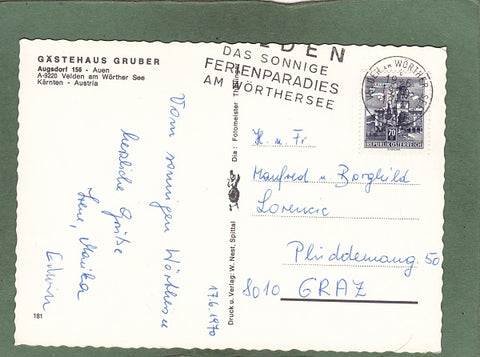 GÄSTEHAUS GRUBER
Augsdorf 156 - Auen
A-9220 Velden am Wörther See
Kärnten - Austria
DAS SONNIGE
FERIENPARADIES
AM WÖRTHERSEE
VELDEN AM WÖRTHER SEE
70
REPUBLIK ÖSTERREICH
Vom sonnigen Wörthersee
herzliche Grüße
Irene, Monika
Edwin
17.6.1970
Dia: Fotomeister
Druck u. Verlag: W. Nest, Spittal
H. u. Fr
Manfred u Borghild
Lorencic
Plüddemang. 50
8010 GRAZ
181